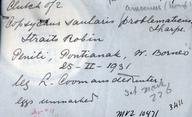 Clutch of 2
Copsychus saularis problematicus
Sharpe.
Straits Robin
Peniti, Pontianak, W. Borneo
25-II-1931
leg L. Coomans de Ruiter
eggs unmarked
Set mark
226